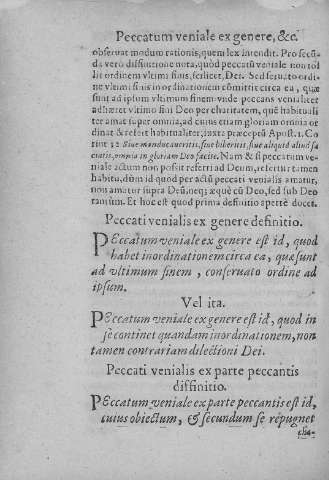 Peccatum veniale ex genere, &c.
obseruat modum rationis, quem lex intendit. Pro secũ-
da verò diffinitione nota, quòd peccatũ veniale non tol
lit ordinem vltimi finis, scilicet, Dei. Sed seruato ordi-
ne vltimi finis inordinationem cõmittit circa ea, quæ
sunt ad ipsum vltimum finem vnde peccans venialiter
adhæret vltimo fini Deo per charitatem, quẽ habituali
ter amat super omnia, ad cuius etiam gloriam omnia or
dinat & refert habitualiter, iuxta præceptũ Apost. 1. Co
rint 32 Siue manducaueritis, siue biberitis, siue aliquid aliud fa
ciatis, omnia in gloriam Dei facite. Nam & si peccatum ve-
niale actum non possit referri ad Deum, refertur tamen
habitu, dũm id quod per actũ peccati venialis amatur,
non amatur supra Deũ, neq; æquè cũ Deo, sed sub Deo
tantùm. Et hoc est quod prima definitio apertè docet.
Peccati venialis ex genere definitio.
PEccatum veniale ex genere est id, quod
habet inordinationem circa ea, quæ sunt
ad vltimum finem, conseruato ordine ad
ipsum.
Vel ita.
PEccatum veniale ex genere est id, quod in
se continet quandam inordinationem, non
tamen contrariam dilectioni Dei.
Peccati venialis ex parte peccantis
diffinitio.
PEccatum veniale ex parte peccantis est id,
cuius obiectum, & secundum se repugnet
cha-